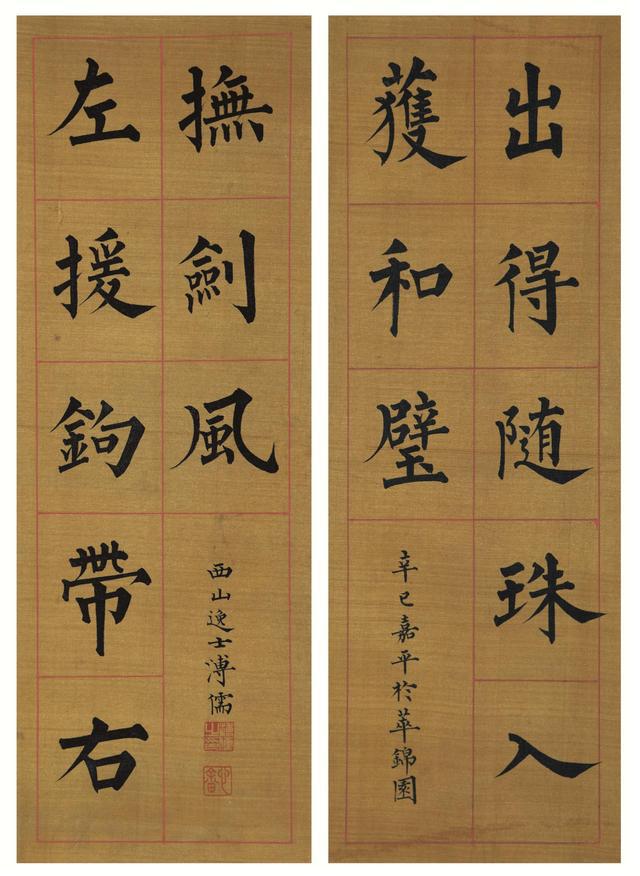 出得随珠入
獲和璧
辛巳嘉平於萃錦園
左援鉤帶右
撫劍風
西山逸士溥儒